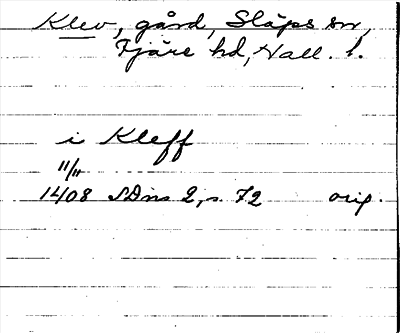 Klev, gård, Släps sn,
Fjäre hd, Hall. l.
i Kleff
11/11
1408 SDns 2, s. 72 orig.